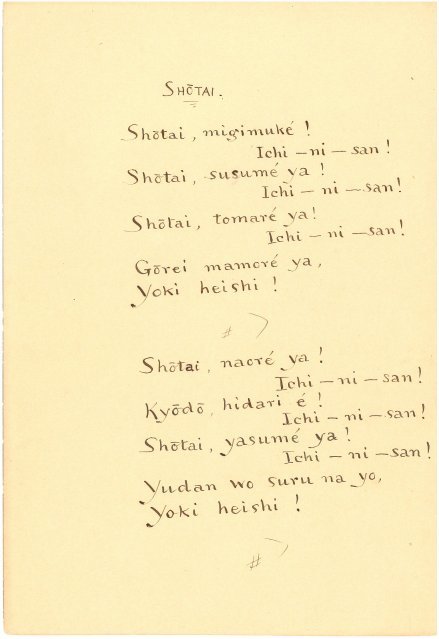 SHŌTAI.
Shōtai, migimuké!
Ichi – ni – san!
Shōtai, susumé ya!
Ichi – ni – san!
Shōtai, tomaré ya!
Ichi – ni – san!
Gōrei mamoré ya,
Yoki heishi!
#
Shōtai, naoré ya!
Ichi – ni – san!
Kyōdō, hidari é!
Ichi – ni – san!
Shōtai, yasumé ya!
Ichi – ni – san!
Yudan wo suru na yo,
Yoki heishi!
#